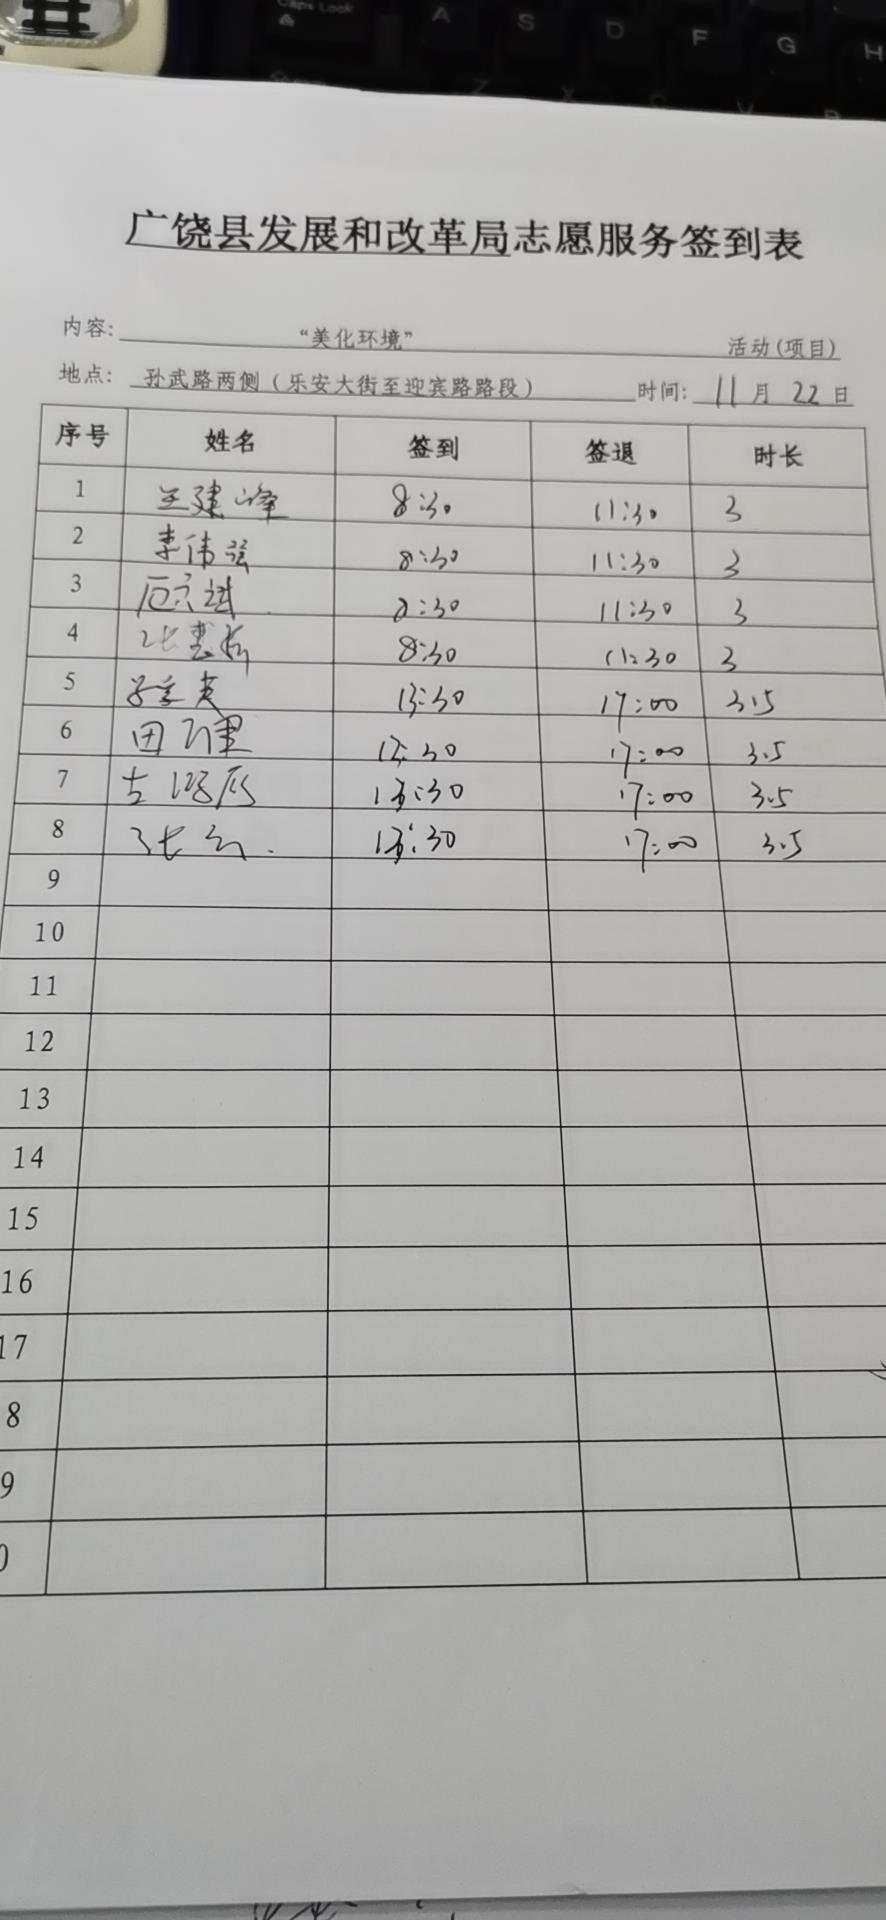 Caps Lock
A S D F G H
Z X C V B
广饶县发展和改革局志愿服务签到表
内容: “美化环境” 活动(项目)
地点: 孙武路两侧（乐安大街至迎宾路路段） 时间: 11月22日
序号 姓名 签到 签退 时长
1 王建峰 8:30 11:30 3
2 李伟强 8:30 11:30 3
3 8:30 11:30 3
4 张 8:30 11:30 3
5 13:30 17:00 3.5
6 田 13:30 17:00 3.5
7 13:30 17:00 3.5
8 张 13:30 17:00 3.5
9
10
11
12
13
14
15
16
17
8
9
0